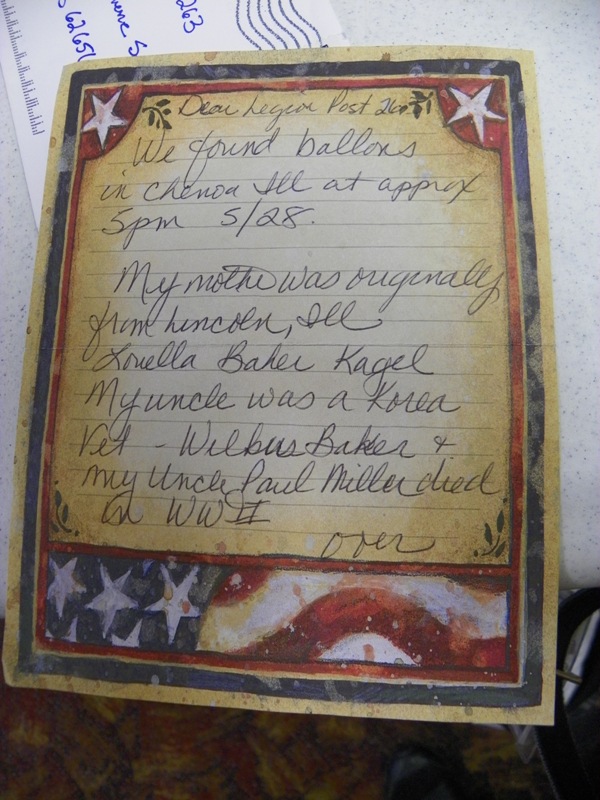 263
5 6265
Dear Legion Post 263
We found ballons
in Chenoa Ill at approx
5pm 5/28.
My mothe was originally
from Lincoln, Ill
Louella Baker Kagel
My uncle was a Korea
Vet - Wilbus Baker &
my Uncle Paul Miller died
in WW II
over